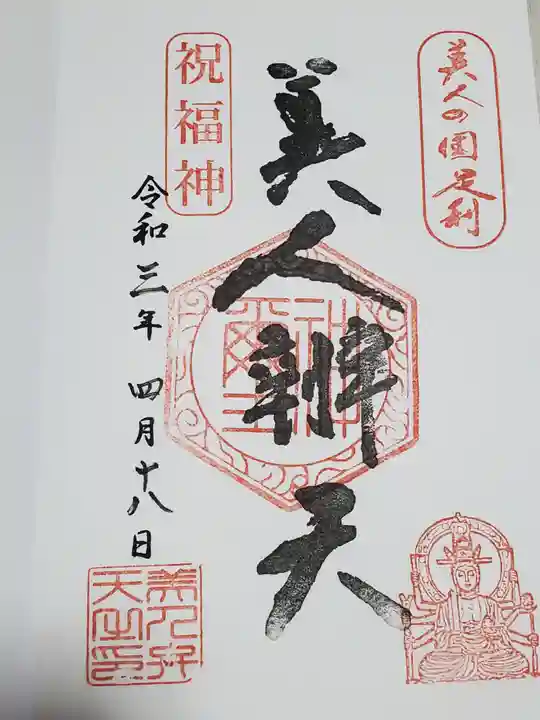 美人の国足利
美人辨天
祝福神
令和三年 四月十八日
美人弁
天之印